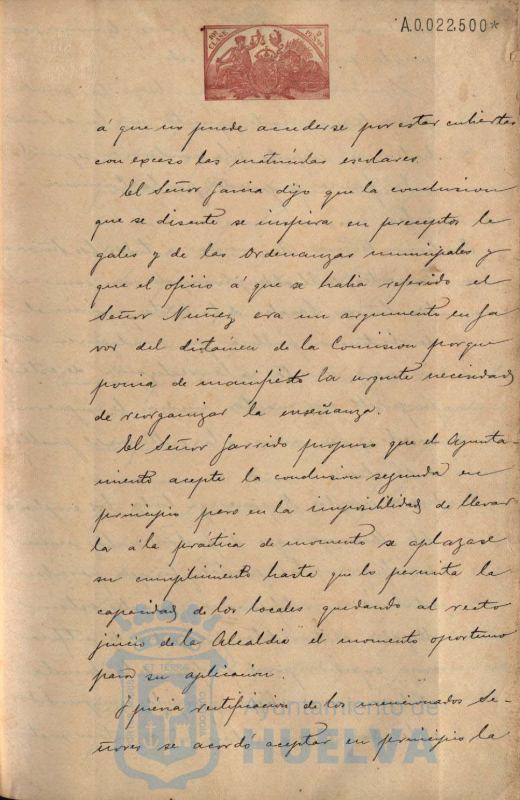 A.0.022.500*
á que no puede accederse por estar cubiertas
con exceso las matrículas escolares.
El Señor Garcia dijo que la conclusion
que se discute se inspira en preceptos le
gales y de las Ordenanzas municipales y
que el oficio á que se habia referido el
Señor Nuñez era un argumento en fa
vor del dictámen de la Comision porque
ponia de manifiesto la urgente necesidad
de reorganizar la enseñanza.
El Señor Garrido propuso que el Ayunta-
miento acepte la conclusion segunda en
principio pero en la imposibilidad de llevar
la á la práctica de momento se aplazase
su cumplimiento hasta que lo permita la
capacidad de los locales quedando al recto
juicio de la Alcaldia el momento oportuno
para su aplicacion.
Y prévia rectificacion de los mencionados Se-
ñores se acordó aceptar en principio la
Ayuntamiento de
HUELVA